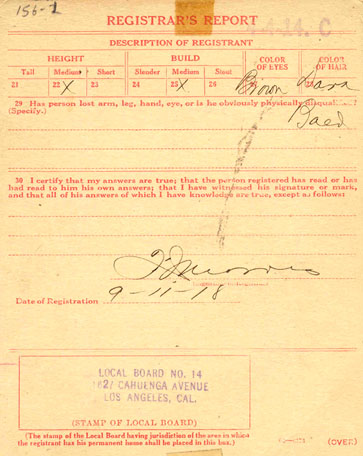 156-1
REGISTRAR'S REPORT
4-14. C
DESCRIPTION OF REGISTRANT
HEIGHT BUILD COLOR OF EYES COLOR OF HAIR
Tall Medium Short Slender Medium Stout
21 22 X 23 24 25 X 26 Brown Dark
29 Has person lost arm, leg, hand, eye, or is he obviously physically disqualified?
(Specify.)
Bald
30 I certify that my answers are true; that the person registered has read or has
had read to him his own answers; that I have witnessed his signature or mark,
and that all of his answers of which I have knowledge are true, except as follows:
Date of Registration 9-11-18
LOCAL BOARD NO. 14
1627 CAHUENGA AVENUE
LOS ANGELES, CAL.
(STAMP OF LOCAL BOARD)
(The stamp of the Local Board having jurisdiction of the area in which
the registrant has his permanent home shall be placed in this box.)
(OVER)